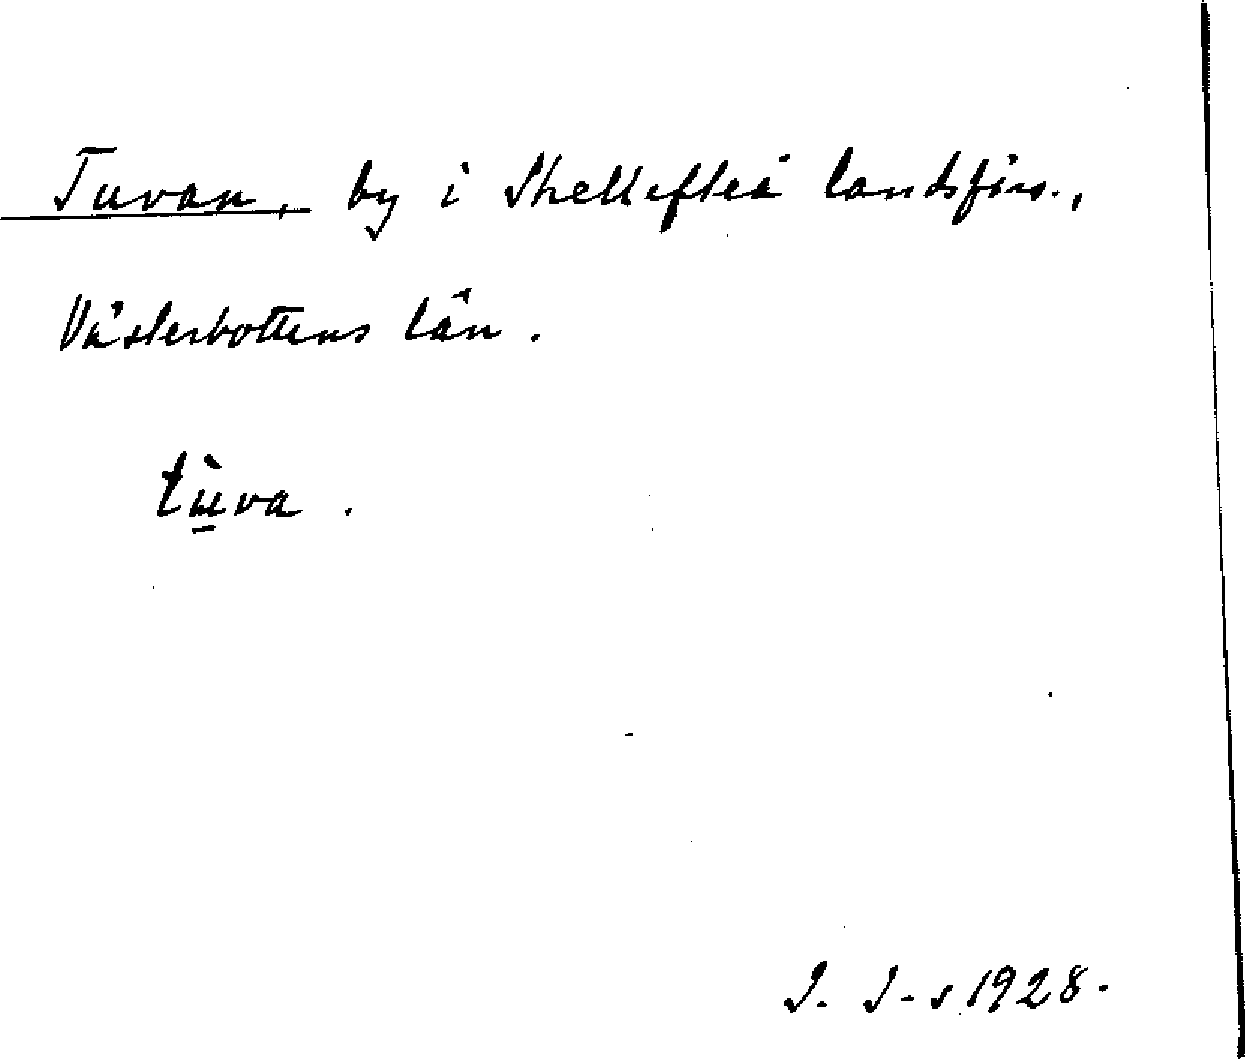 Tuvan, by i Skellefteå landsförs.,
Västerbottens län.
tùva.
J. J-s 1928.